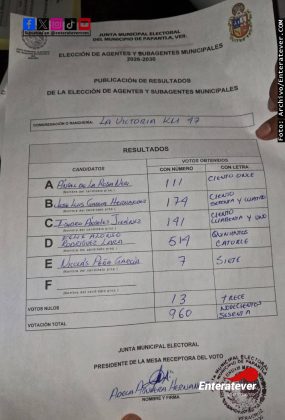 Suscribete en @enteratevermx
JUNTA MUNICIPAL ELECTORAL
DEL MUNICIPIO DE PAPANTLA, VER.
ELECCIÓN DE AGENTES Y SUBAGENTES MUNICIPALES
2026-2030
PUBLICACIÓN DE RESULTADOS
DE LA ELECCIÓN DE AGENTES Y SUBAGENTES MUNICIPALES
CONGREGACIÓN O RANCHERÍA: LA VICTORIA KM 47
RESULTADOS
VOTOS OBTENIDOS
CANDIDATOS CON NÚMERO CON LETRA
A 111 CIENTO ONCE
(Nombre del candidato prop.)
B JOSE LUIS GARCIA HERNANDEZ 174 CIENTO SETENTA Y CUATRO
(Nombre del candidato prop.)
C JUAREZ 141 CIENTO CUARENTA Y UNO
(Nombre del candidato prop.)
D RODRIGUEZ LARA 514 QUINIENTOS CATORCE
(Nombre del candidato prop.)
E NICOLAS PEÑA GARCIA 7 SIETE
(Nombre del candidato prop.)
F
(Nombre del candidato prop.)
VOTOS NULOS 13 TRECE
VOTACIÓN TOTAL 960 NOVECIENTOS SESENTA
JUNTA MUNICIPAL ELECTORAL
PRESIDENTE DE LA MESA RECEPTORA DEL VOTO
NOMBRE Y FIRMA
Enteratever
Foto: Archivo/Enteratever.com